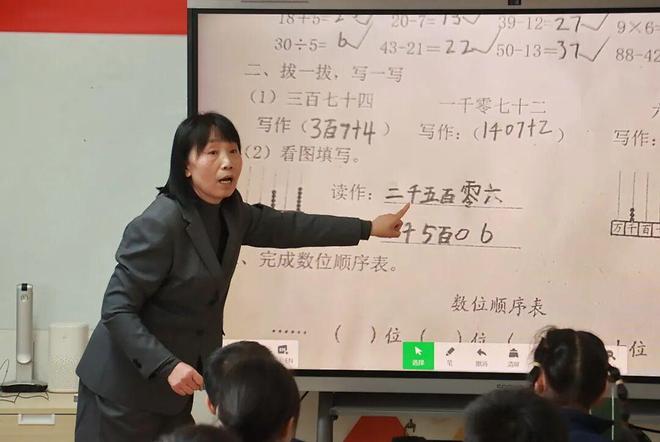 20-7=13 39-12=27 9×6=
30÷5=6 43-21=22 50-13=37 88-42
二、拨一拨，写一写
（1）三百七十四 一千零七十二
写作（3百7十4） 写作：（1千07十2） 写作：
（2）看图填写。
读作：二千五百零六
千5百0 6
万 千 百 十
、完成数位顺序表。
数位顺序表
…… （ ）位 （ ）位 （ 位
选择 笔 撤消 清屏